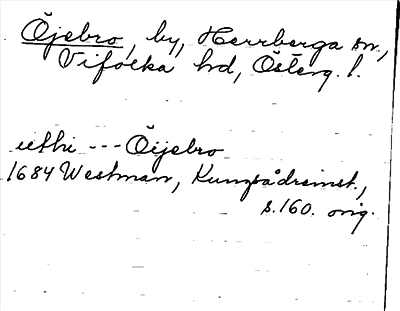 Öjebro, by, Herrberga sn,
Vifolka hd, Österg. l.
uthi --- Öijebro
1684 Westman, Kungsådreinst.,
s. 160. orig.